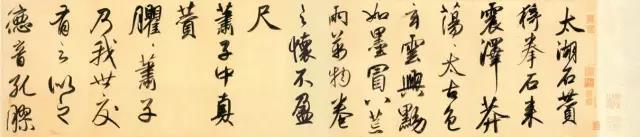 太湖石贊
猗拳石来
震澤莽
蕩、太古色
玄雲興黝
如墨冒八荒
雨萬物卷
之懷不盈
尺
蕭子中真
贊
臞、蕭子
乃我世交
有之似之
德音孔膠